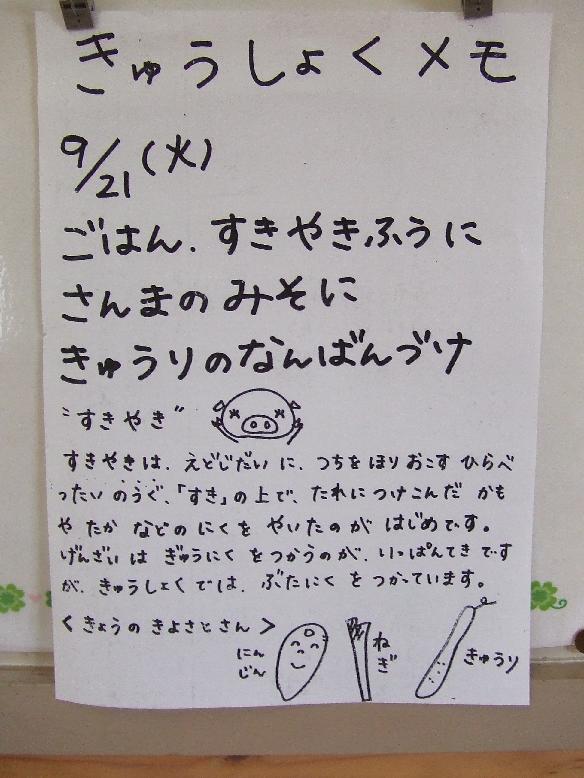 きゅうしょくメモ
9/21(火)
ごはん、すきやきふうに
さんまのみそに
きゅうりのなんばんづけ
"すきやき"
すきやきは、えどじだいに、つちをほりおこすひらべ
ったいのうぐ、「すき」の上で、たれにつけこんだかも
やたかなどのにくをやいたのがはじめです。
げんざいはぎゅうにくをつかうのが、いっぱんてきです
が、きゅうしょくでは、ぶたにくをつかっています。
<きょうのきよさとさん>
にん
じん
ねぎ
きゅうり